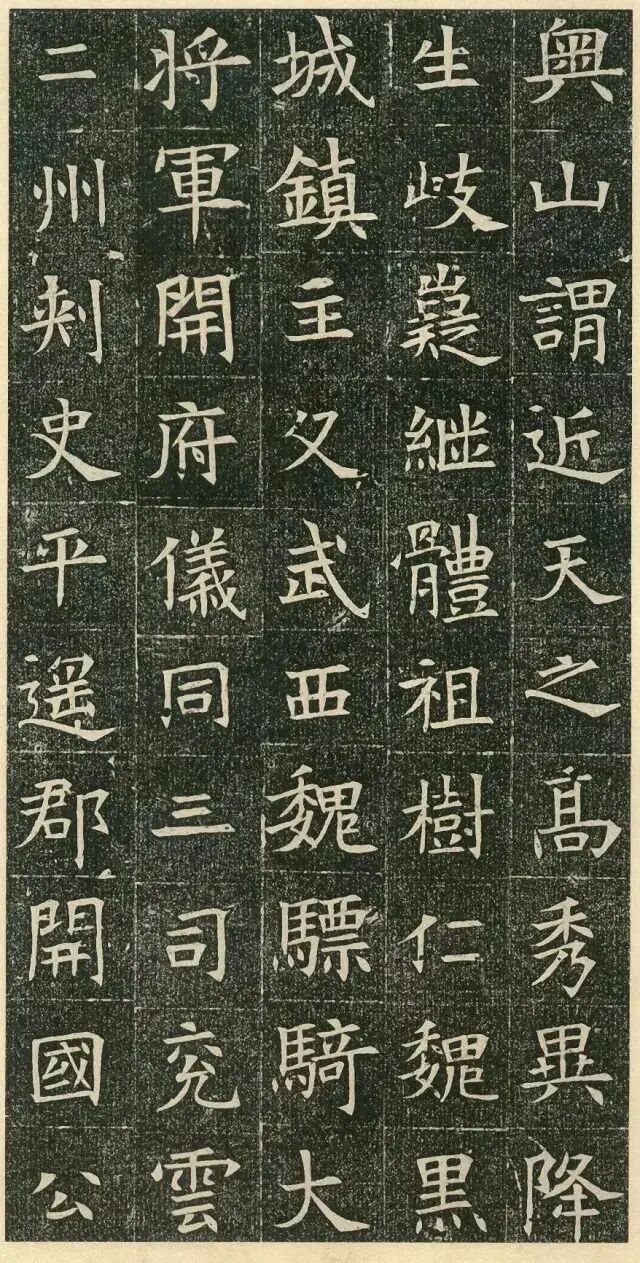 輿山謂近天之髙秀異降
生岐嶷継體祖樹仁魏黒
城鎮主父武西魏驃騎大
将軍開府儀同三司兖雲
二州刾史平遥郡開國公